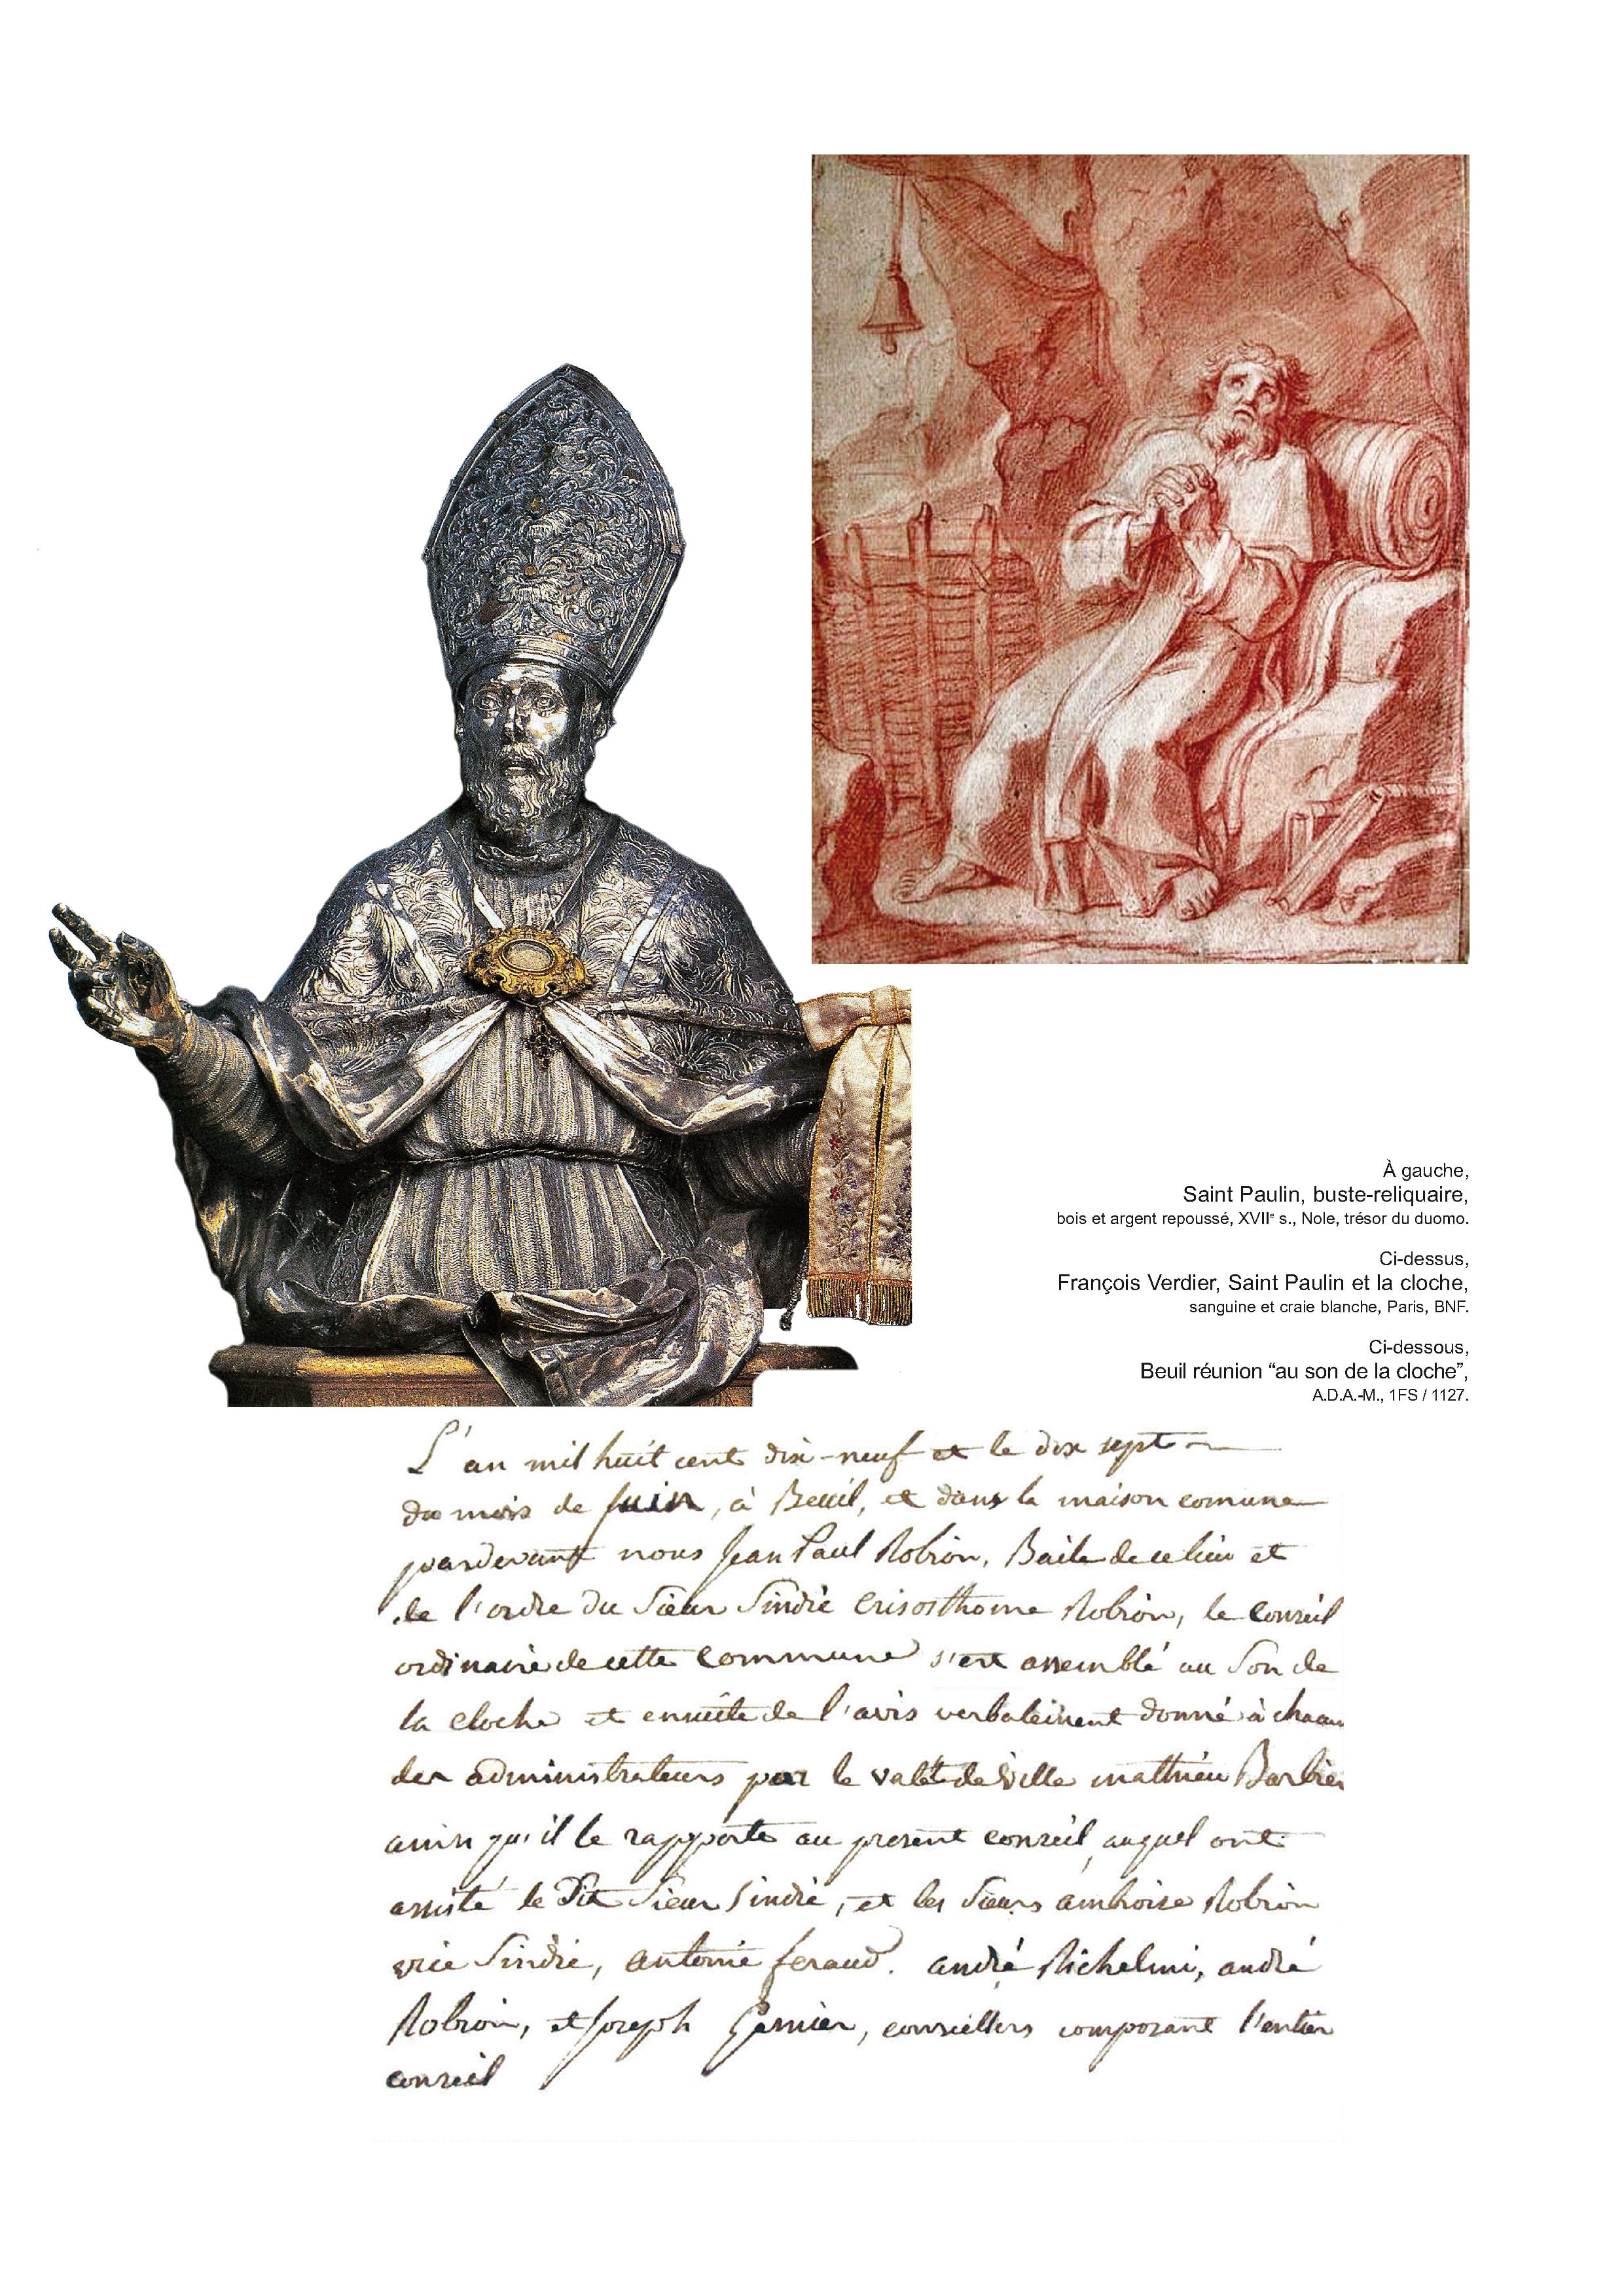 À gauche,
Saint Paulin, buste-reliquaire,
bois et argent repoussé, XVIIe s., Nole, trésor du duomo.
Ci-dessus,
François Verdier, Saint Paulin et la cloche,
sanguine et craie blanche, Paris, BNF.
Ci-dessous,
Beuil réunion “au son de la cloche”,
A.D.A.-M., 1FS / 1127.
L'an mil huit cent dix-neuf et le dix sept
du mois de Juin, à Beuil, et dans la maison comune
pardevant nous Jean Paul Robion, Baile de ce lieu et
de l'ordre du Sieur Sindic Crisosthome Robion, le Conseil
ordinaire de cette Commune s'est assemblé au Son de
la cloche et ensuite de l'avis verbalement donné à chacun
des administrateurs par le valet de ville matthieu Barbier
ainsi qu'il le rapporte au present conseil, auquel ont
assisté le Dit Sieur Sindic, et les Sieurs ambroise Robion
vice Sindic, antoine feraud. andré Richelmi, andré
Robion, et Joseph Garnier, conseillers composant l'entier
conseil